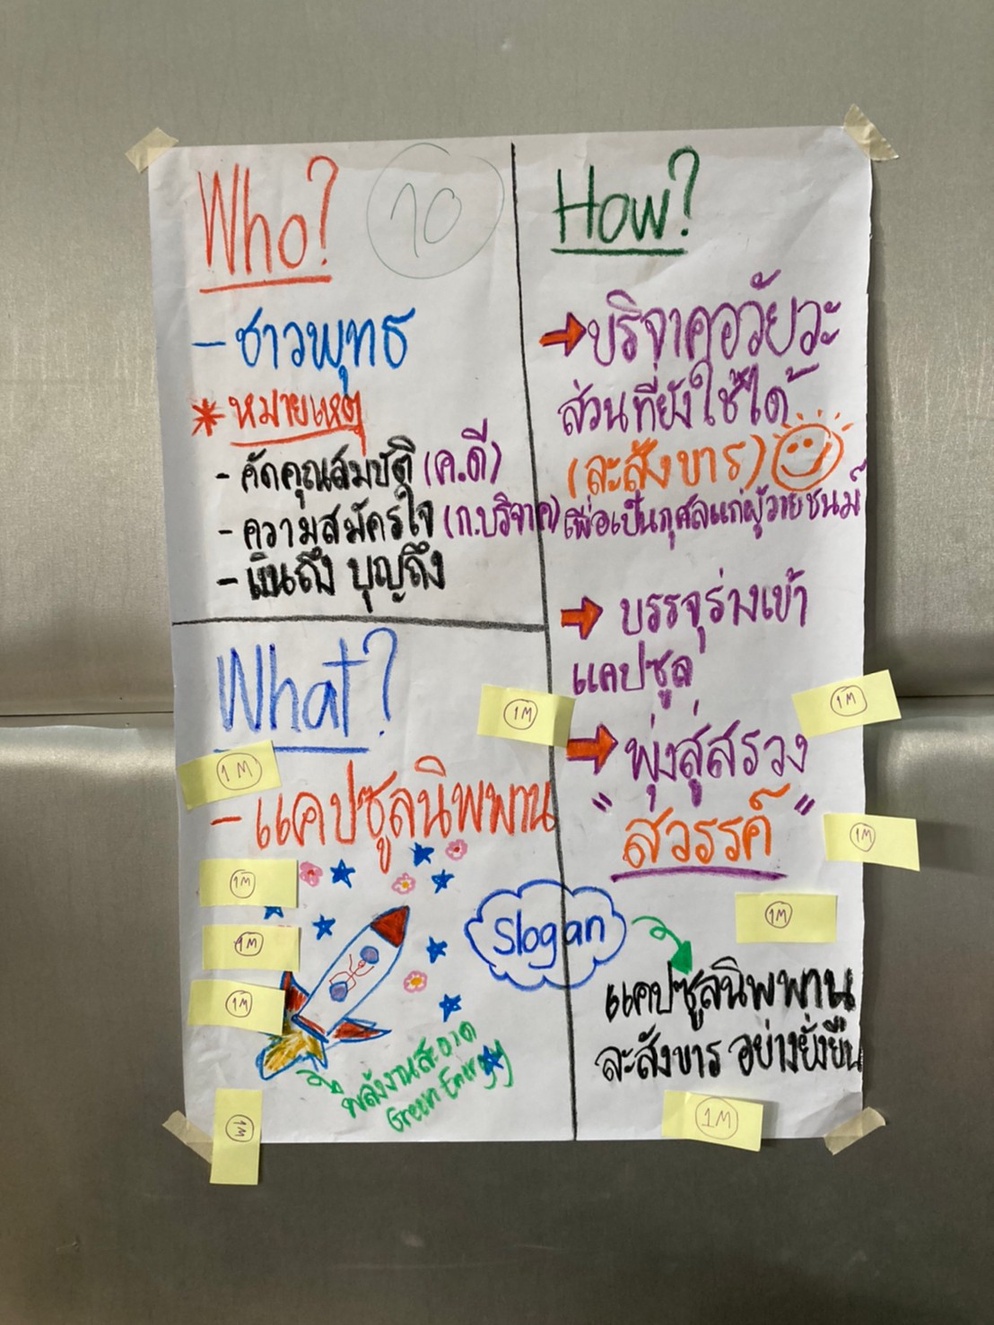 Who?
10
- ชาวพุทธ
* หมายเหตุ
- คัดคุณสมบัติ (ค.ดี)
- ความสมัครใจ (ก.บริจาค)
- เงินถึง บุญถึง
What?
- แคปซูลนิพพาน
พลังงานสะอาด
Green Energy
How?
→ บริจาคอวัยวะ
ส่วนที่ยังใช้ได้
(ละสังขาร)
เพื่อเป็นกุศลแก่ผู้วายชนม์
→ บรรจุร่างเข้า
แคปซูล
→ พุ่งสู่สรวง
"สวรรค์"
Slogan
แคปซูลนิพพาน
ละสังขาร อย่างยั่งยืน
1M
1M
1M
1M
1M
1M
1M
1M
1M
1M